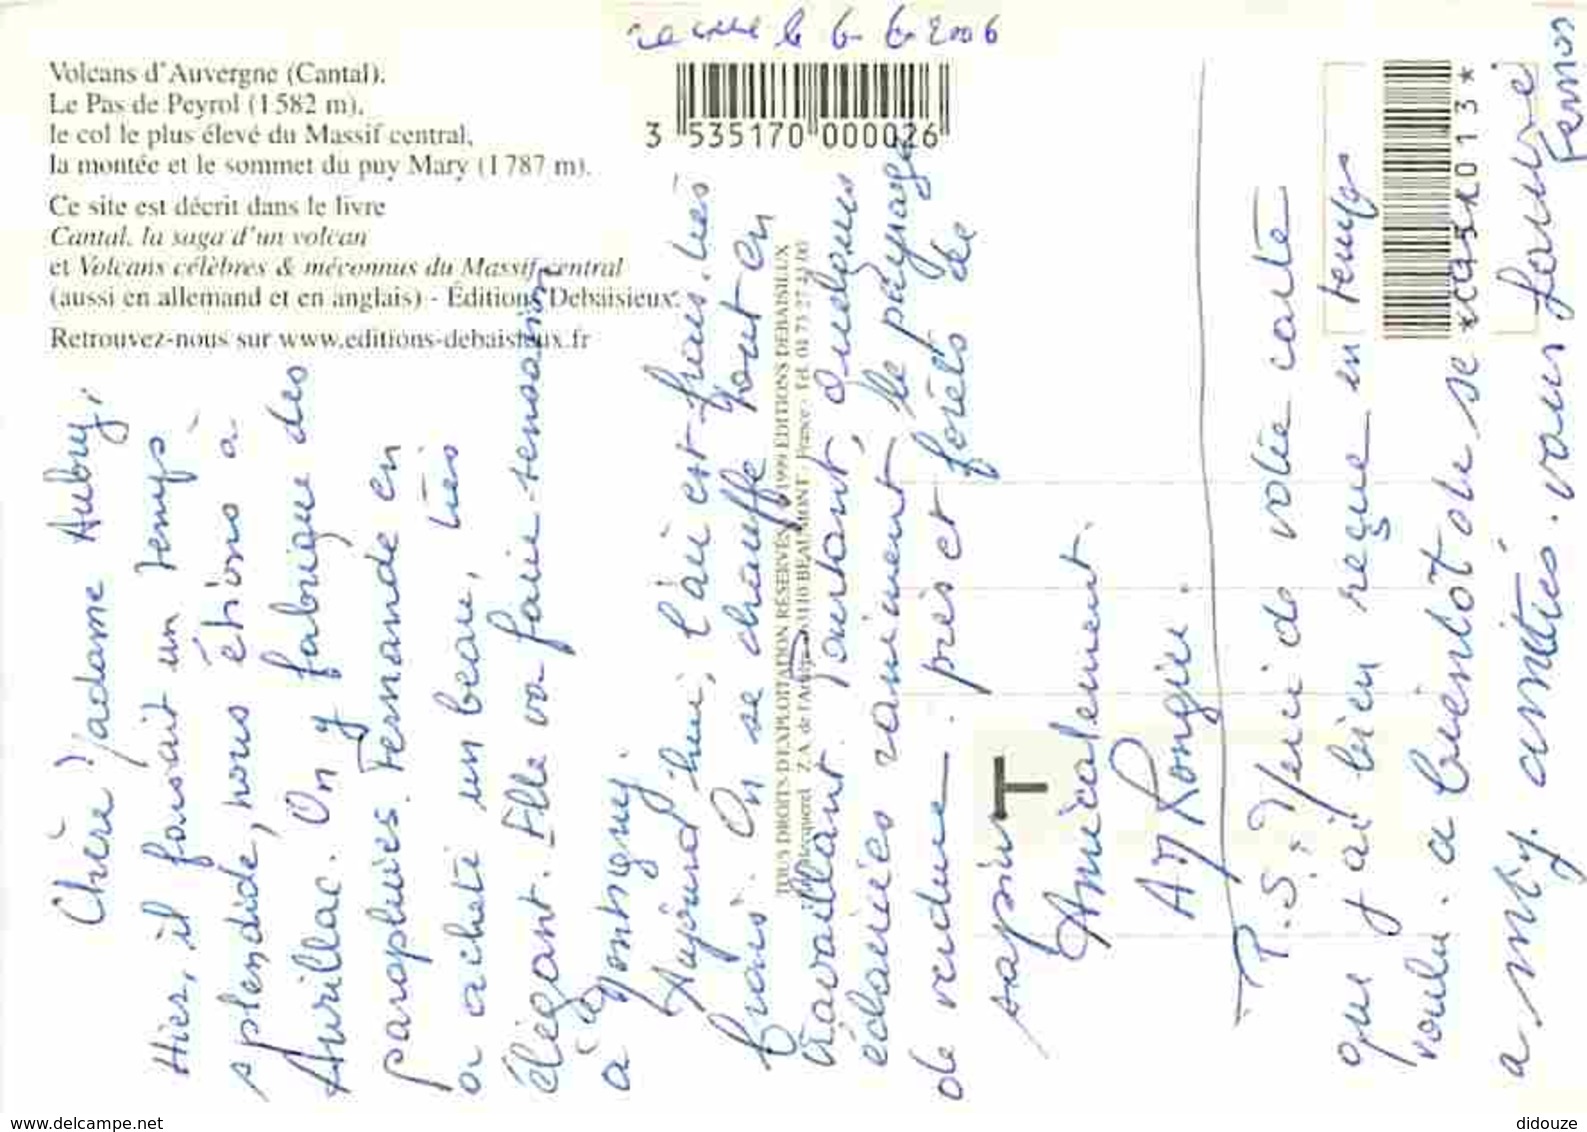 reçue le 6-6-2006
Volcans d'Auvergne (Cantal).
Le Pas de Peyrol (1 582 m),
le col le plus élevé du Massif central,
la montée et le sommet du puy Mary (1 787 m).
Ce site est décrit dans le livre
Cantal, la saga d'un volcan
et Volcans célèbres & méconnus du Massif central
(aussi en allemand et en anglais) - Éditions Debaisieux.
Retrouvez-nous sur www.editions-debaisieux.fr
3 535170 000026
TOUS DROITS D'EXPLOITATION RÉSERVÉS 1999 ÉDITIONS DEBAISIEUX
Z.A. de 63110 BEAUMONT - France - Tél. 04 73 27
Chère Madame Aubry,
Hier, il faisait un temps
splendide, nous étions à
Aurillac. On y fabrique des
parapluies. Fernande en
a acheté un beau, très
élégant. Elle va faire sensation
à Montigny.
Aujourd'hui, l'air est frais. très
frais. On se chauffe tout en
travaillant. Pourtant, quelques
éclaircies raniment le paysage
de verdure. prés et forêts de
sapins
Amicalement.
AM Rongier.
P.S. : Merci de votre carte
que j'ai bien reçue en temps
voulu. a bientôt de se
a Mty. amitiés. vous
T
*CQ5K013*
www.delcampe.net
didouze